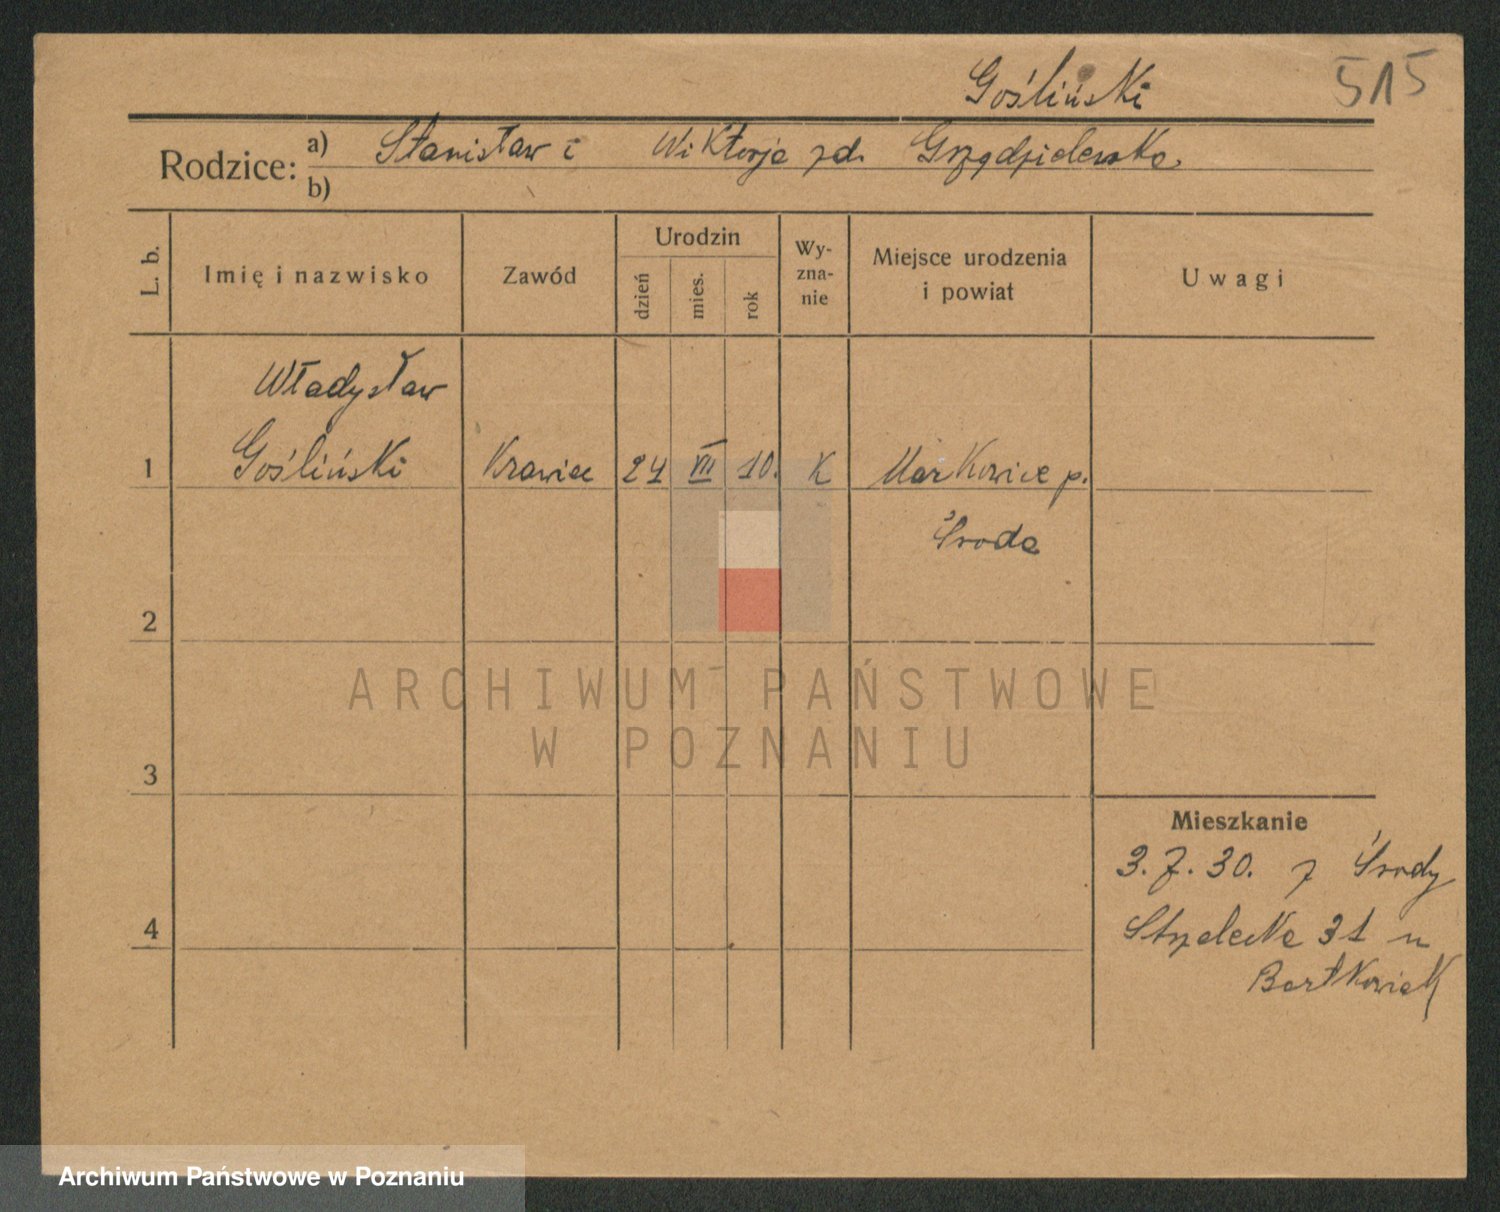 Gośliński 515
Rodzice: a) Stanisław i Wiktorja zd. Grządzielewska.
b)
L. b. Imię i nazwisko Zawód Urodzin dzień mies. rok Wy-
zna-
nie Miejsce urodzenia
i powiat Uwagi
Władysław
1 Gośliński Krawiec 24 VII 10. K Markowice p.
Środa
2
ARCHIWUM PAŃSTWOWE
W POZNANIU
3
Mieszkanie
3.7.30. z Środy
4 Strzelecka 31 u
Bartkowiak
Archiwum Państwowe w Poznaniu